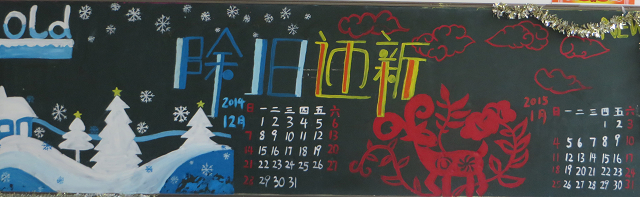 old
除旧迎新
NEW
2014
12月
日 一 二 三 四 五 六
1 2 3 4 5 6
7 8 9 10 11 12 13
14 15 16 17 18 19 20
21 22 23 24 25 26 27
28 29 30 31
2015
1月
日 一 二 三 四 五 六
1 2 3
4 5 6 7 8 9 10
11 12 13 14 15 16 17
18 19 20 21 22 23 24
25 26 27 28 29 30 31